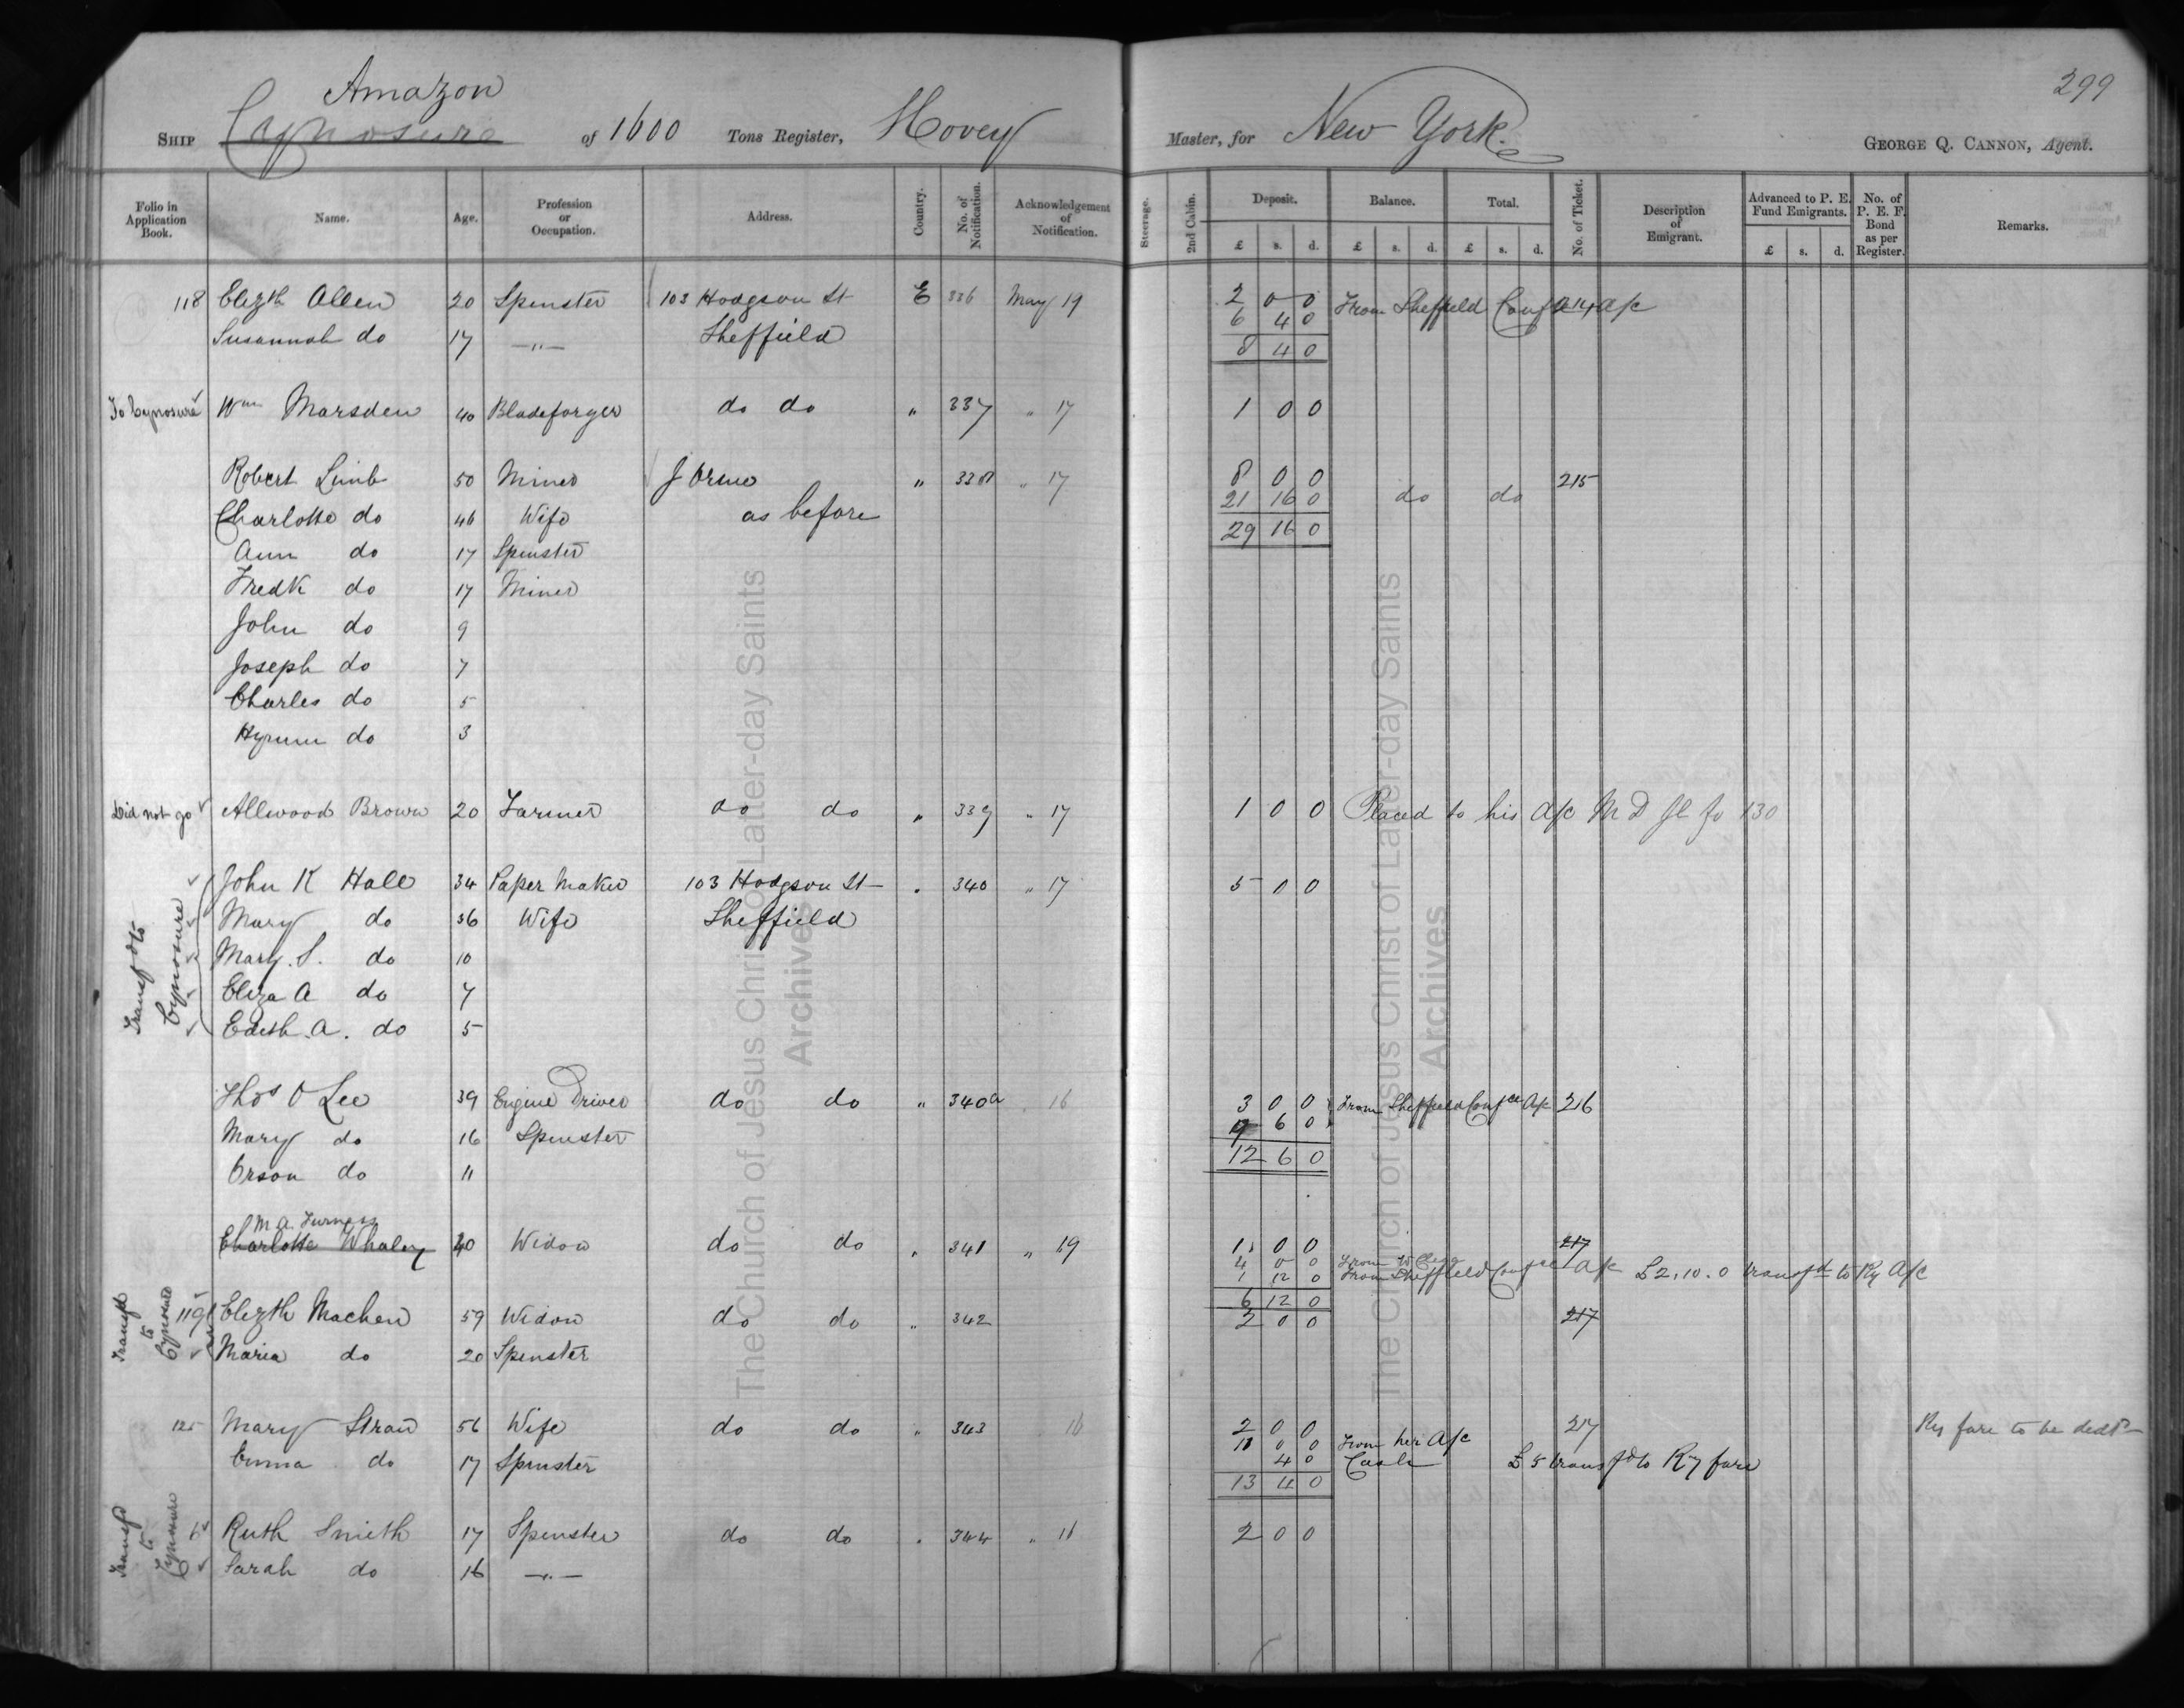 299
Amazon
SHIP Cynosure of 1600 Tons Register, Hovey Master, for New York. GEORGE Q. CANNON, Agent.
Folio in Application Book. Name. Age. Profession or Occupation. Address. Country. No. of Notification. Acknowledgement of Notification. Steerage. 2nd Cabin. Deposit. Balance. Total. No. of Ticket. Description of Emigrant. Advanced to P. E. Fund Emigrants. No. of P. E. F. Bond as per Register. Remarks.
£ s. d. £ s. d. £ s. d. £ s. d.
118 Elizth Allen 20 Spinster 103 Hodgson St E 336 May 19 2 0 0 From Sheffield Conf 214 a/c
6 4 0
Susannah do 17 —"— Sheffield 8 4 0
To Cynosure Wm Marsden 40 Bladeforger do do " 337 " 17 1 0 0
Robert Limb 50 Miner J Orme " 338 " 17 8 0 0 215
21 16 0 do do
Charlotte do 46 Wife as before 29 16 0
Ann do 17 Spinster
Fredk do 17 Miner
John do 9
Joseph do 7
Charles do 5
Hyrum do 3
Did not go Allwood Brown 20 Farmer do do " 339 " 17 1 0 0 Placed to his a/c M D Jl fo 130
Transfd to Cynosure
John K Hall 34 Paper Maker 103 Hodgson St " 340 " 17 5 0 0
Mary do 36 Wife Sheffield
Mary. S. do 10
Eliza A do 7
Edith. A. do 5
Thos O Lee 39 Engine Driver do do " 340a " 16 3 0 0 From Sheffield Confce A/c 216
9 6 0
Mary do 16 Spinster 12 6 0
Orson do 11
M A Furness
Charlotte Whaley 40 Widow do do " 341 " 19 1 0 0 217
4 0 0 From
1 12 0 From Sheffield Confce a/c £2.10.0 transfd to Ry A/c
6 12 0
Transfd to Cynosure
119 Elizth Machen 59 Widow do do " 342 2 0 0 217
Maria do 20 Spinster
125 Mary Straw 56 Wife do do " 343 16 2 0 0 217 Ry fare to be dedtd
11 0 0 From her A/c
Emma do 17 Spinster 4 0 Cash £5 transfd to Ry fare
13 4 0
Transfd to Cynosure
6 Ruth Smith 17 Spinster do do " 344 " 16 2 0 0
Sarah do 16 —"—
The Church of Jesus Christ of Latter-day Saints
Archives
The Church of Jesus Christ of Latter-day Saints
Archives